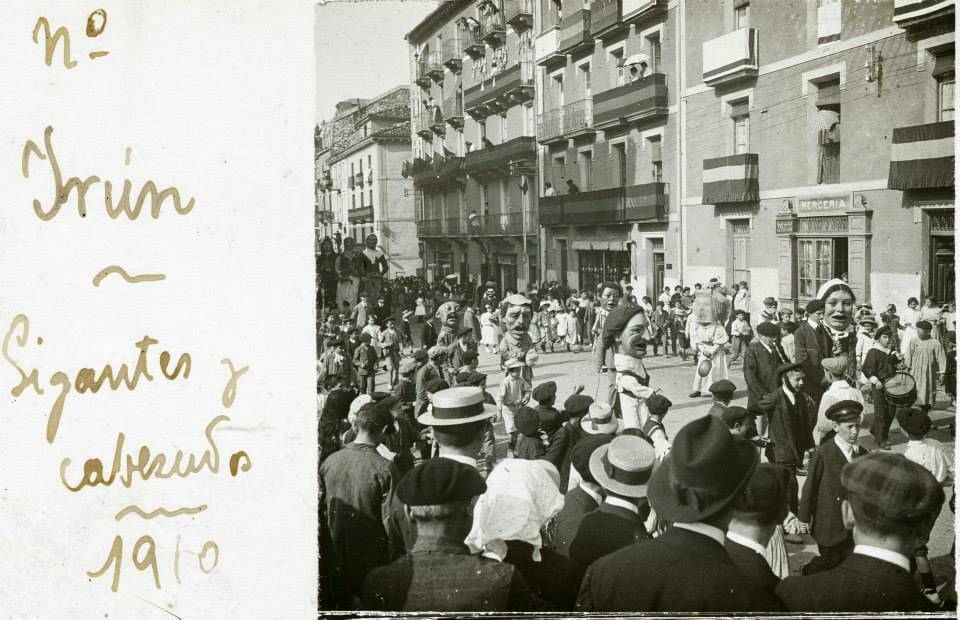 Nº
Irún
Gigantes y
cabezudos
1910
MERCERIA